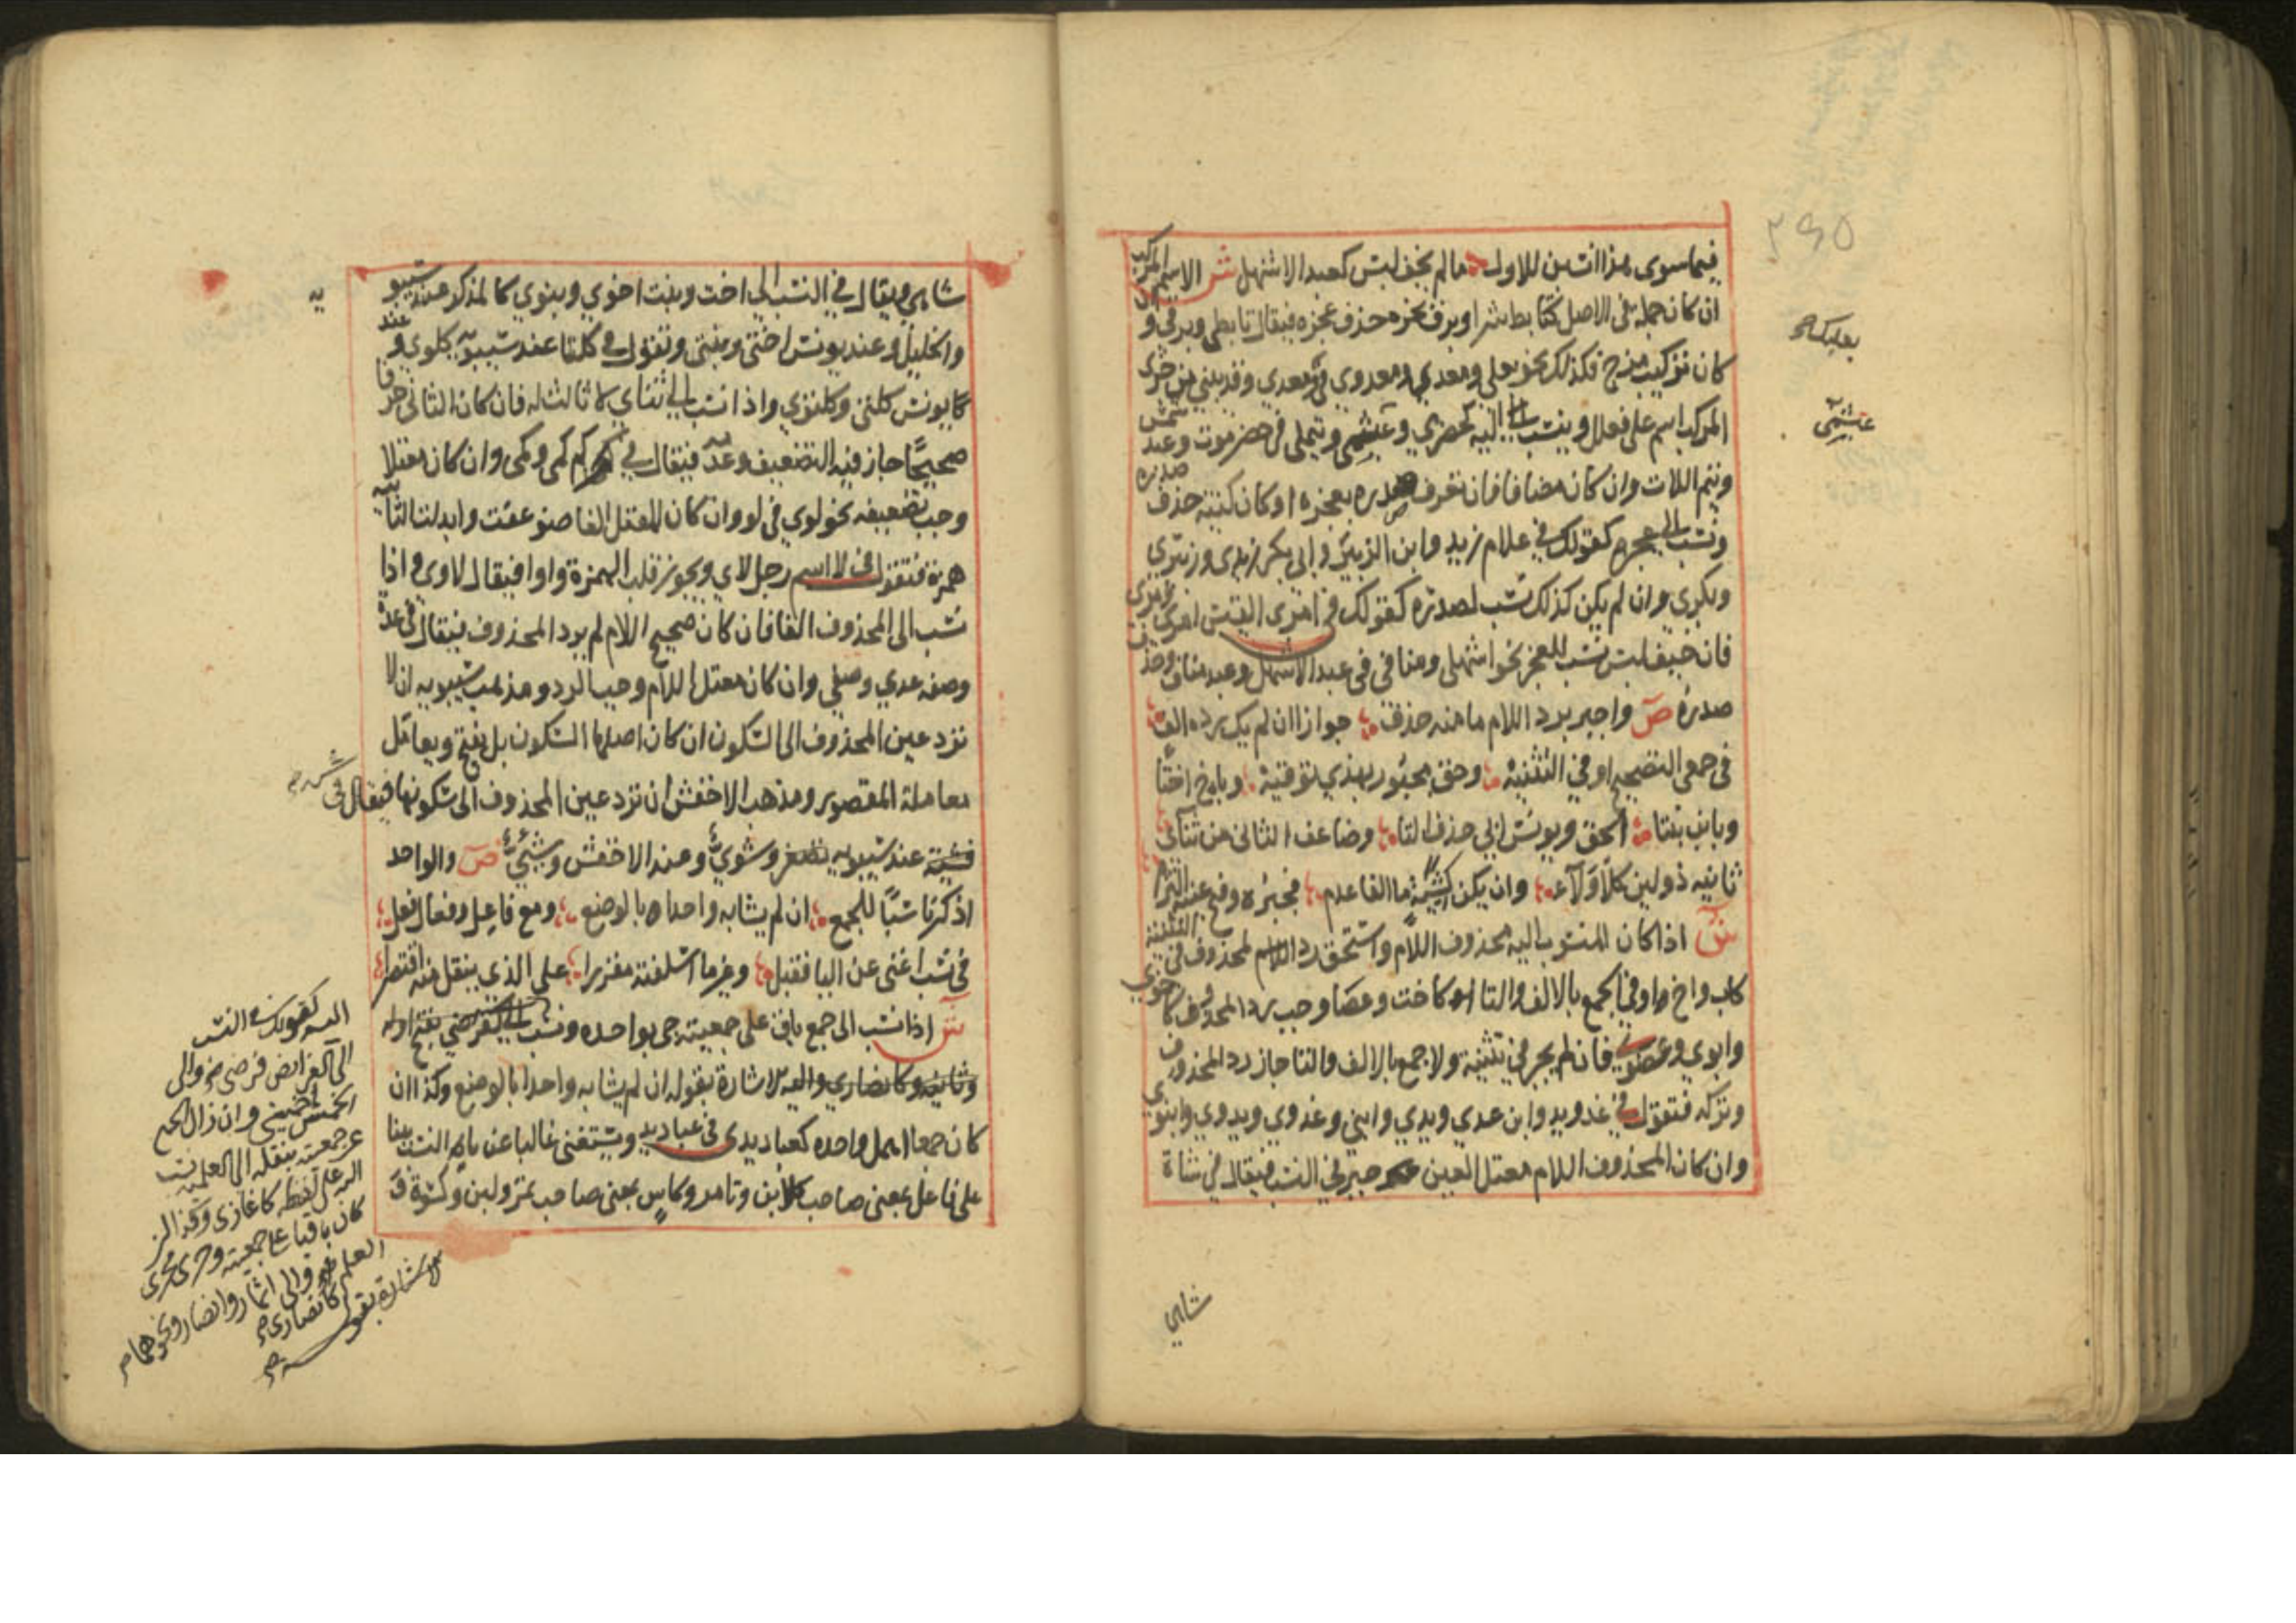 فيما سوى هذا انسبن للاول ما لم يخف لبس كعبد الاشهل ش الاسم المركب
ان كان جملة فى الاصل كتابط شرا وبرق نحره حذف عجزه فيقال تابطى وبرقى وان
كان تركيب مزج فكذلك نحو بعلى ومعدى ومعدوى فى معدى وقد يبنى من جزئى
المركب اسم على فعلل وينسب اليه كحضرمى وعبشمى وتيملى فى حضرموت وعبد شمس
وتيم اللات وان كان مضافا فان تعرف صدره بعجزه او كان كنية حذف صدره
ونسب الى عجزه كقولك فى غلام زيد وابن الزبير وابى بكر زيدى وزبيرى
وبكرى وان لم يكن كذلك نسب لصدره كقولك فى امرى القيس امرى
فان خيف لبس نسب للعجز نحو اشهلى ومنافى فى عبد الاشهل وعبد مناف وحذف
صدره ص واجبر برد اللام ما منه حذف جوازا ان لم يك رده الف
فى جمعى التصحيح او فى التثنية وحق مجبور بهذى توقيه وباخ اختا
وبابن بنتا الحق ويونس ابى حذف التا وضاعف الثانى من ثنائى
ثانيه ذو لين كلا ولائى وان يكن كشية ما الفا عدم فجبره وفتح عينه التزم
ش اذا كان المنسوب اليه محذوف اللام واستحق رد المحذوف فى التثنية
كاب واخ او فى الجمع بالالف والتا كاخت وعضا وجب رد المحذوف كاخوى
وابوى وعضوى فان لم يجر فى تثنية ولا جمع بالالف والتا جاز رد المحذوف
وتركه فتقول فى غد ويد وابن غدى ويدى وابنى وغدوى ويدوى وبنوى
وان كان المحذوف اللام معتل العين جبر فى النسب فيقال فى شاة
شاهى
٢٩٥
بعلبك
عبشمى
شاهى ويقال فى النسب الى اخت وبنت اخوى وبنوى كالمذكر عند سيبو
يه
والخليل وعند يونس اختى وبنتى وتقول فى كلتا عند سيبويه كلوى وعند
يونس كلتى وكلتوى واذا نسب الى ثنائى لا ثالث له فان كان الثانى حرفا
صحيحا جاز فيه التضعيف وعدمه فيقال فى كم كمى وكمى وان كان معتلا
وجب تضعيفه نحو لوى فى لو وان كان المعتل الفا ضوعفت وابدلت الثانية
همزة فتقول فى لا اسم رجل لائى ويجوز قلب الهمزة واوا فيقال لاوى واذا
نسب الى المحذوف الفا فان كان صحيح اللام لم يرد المحذوف فيقال فى عدة
وصفة عدى وصفى وان كان معتل اللام وجب الرد ومذهب سيبويه ان لا
ترد عين المحذوف الى السكون ان كان اصلها السكون بل يفتح ويعامل
معاملة المقصور ومذهب الاخفش ان ترد عين المحذوف الى سكونها فيقال فى
شية عند سيبويه وشوى وعند الاخفش وشيى ص والواحد
اذكر ناسبا للجمع ان لم يشابه واحدا بالوضع ومع فاعل وفعال فعل
فى نسب اغنى عن اليا فقبل وغير ما اسلفته مقررا على الذى ينقل منه اقتصرا
ش اذا نسب الى جمع باق على جمعيته جى بواحده ونسب اليه كفرضى بفتح اوله
وثانيه وكانصارى واليه الاشارة بقوله ان لم يشابه واحدا بالوضع وكذا ان
كان جمعا اهمل واحده كعباديدى فى عباديد ويستغنى غالبا عن يا النسب ببنا
على فاعل بمعنى صاحب كلابن وتامر وكاس بمعنى صاحب تمر ولبن وكسوة
اليه كقولك فى النسب
الى الفرائض فرضى والى
الحمس احمسى وان زال الجمع
عن جمعيته بنقله الى العلمية نسب
اليه على لفظه كانمارى وكذا ان
كان باقيا على جمعيته وجرى مجرى
العلم كانصارى